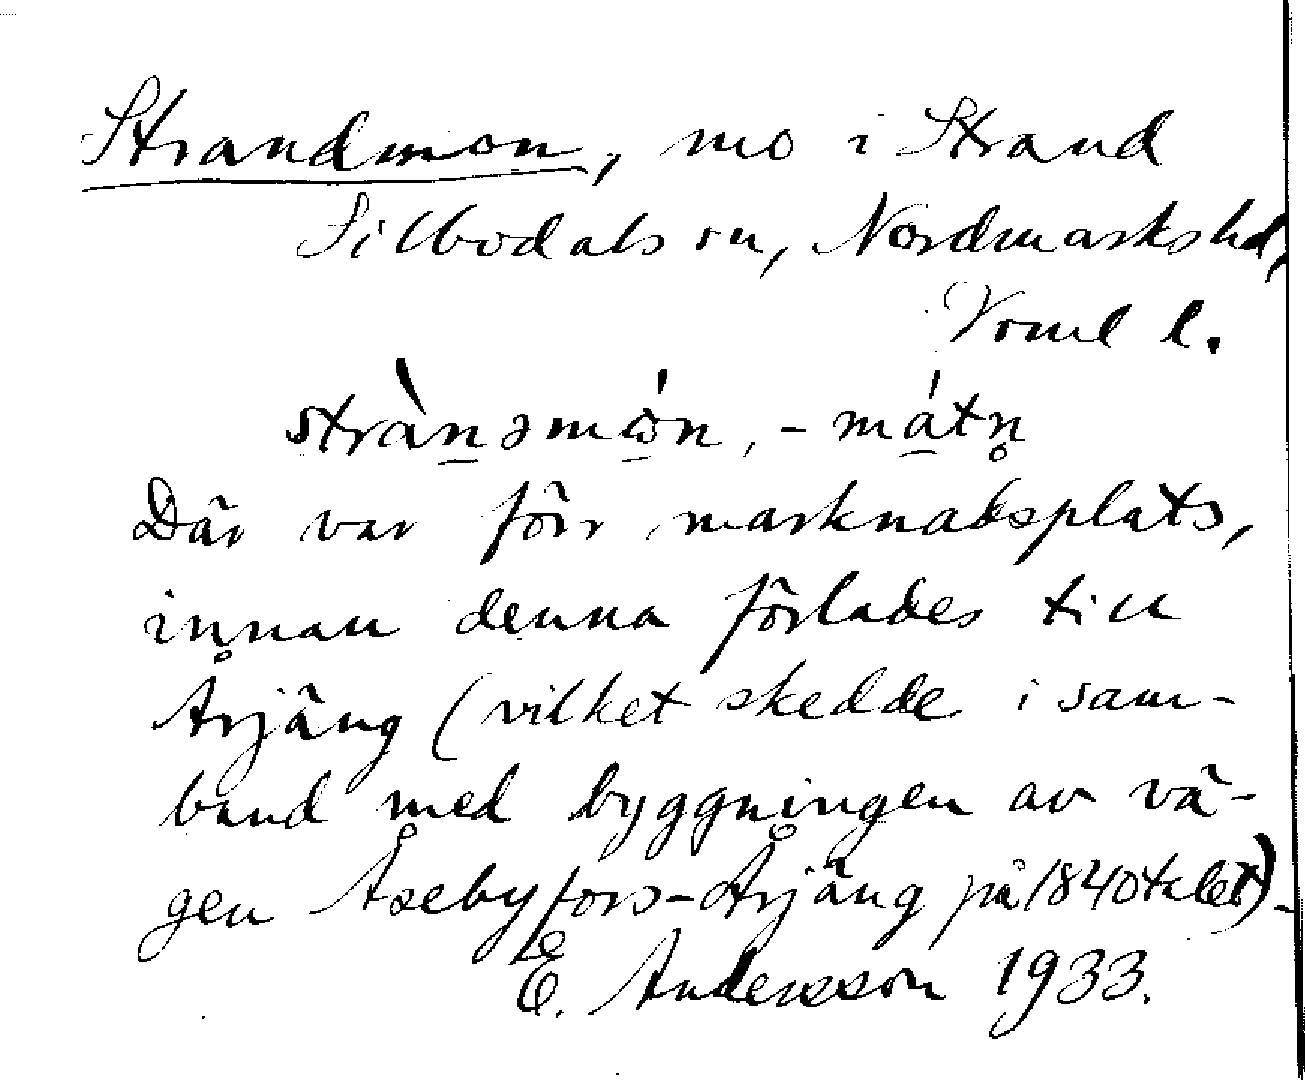 Strandmon, mo i Strand
Silbodals sn, Nordmarks hd,
Vrml l.
stràn̠əmώ̠n, -má̠tn̥
Där var förr marknadsplats,
innan denna förlades till
Årjäng (vilket skedde i sam-
band med byggningen av vä-
gen Åsebyfors-Årjäng på 1840talet)-
E. Andersson 1933.